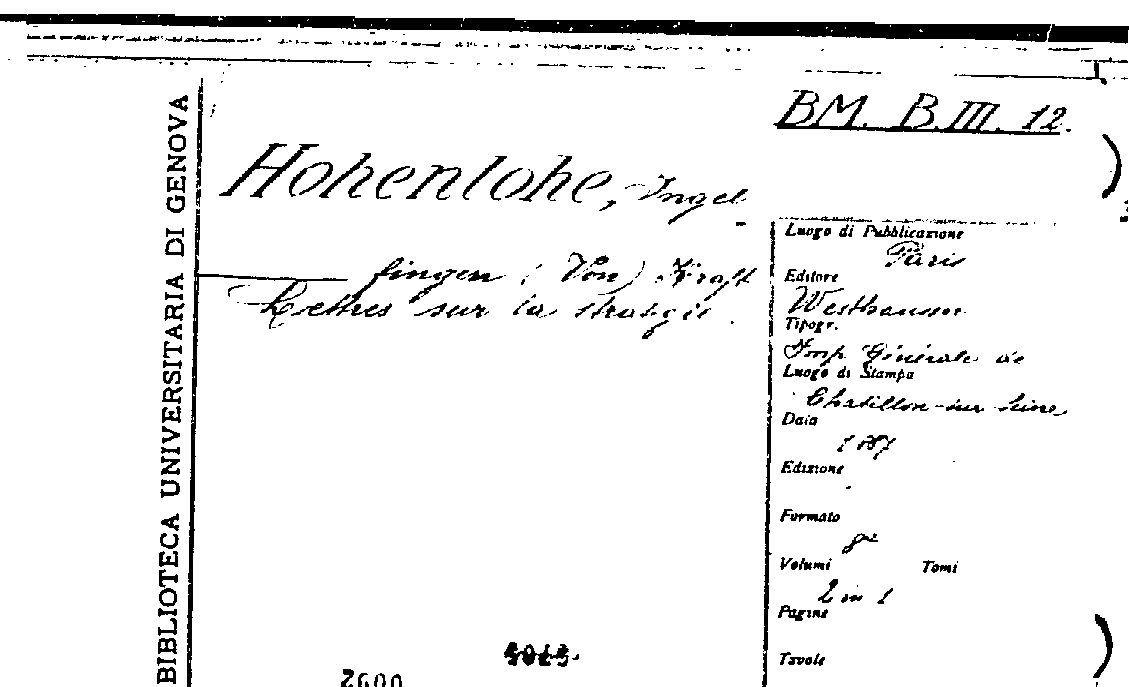 BIBLIOTECA UNIVERSITARIA DI GENOVA
BM. B.III. 12.
Hohenlohe, Ingel
fingen (Von) Kraft
Lettres sur la stratégie.
Luogo di Pubblicazione
Paris
Editore
Westhausser
Tipogr.
Imp. Générale de
Luogo di Stampa
Chatillon-sur Seine
Data
Edizione
Formato
8º
Volumi Tomi
2 in 1
Pagine
Tavole